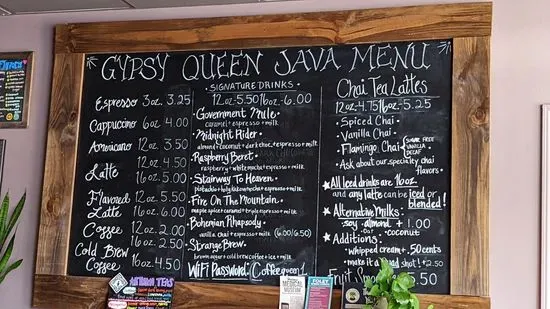 GYPSY QUEEN JAVA MENU
Espresso 3oz. 3.25
Cappuccino 6oz. 4.00
Americano 12oz. 3.50
Latte 12oz. 4.50
16oz. 5.00
Flavored 12oz. 5.50
Latte 16oz. 6.00
Coffee 12oz. 2.00
16oz. 2.50
Cold Brew
Coffee 16oz. 4.50
·SIGNATURE DRINKS·
12oz-5.50 16oz-6.00
·Government Mule·
caramel·espresso·milk
·Midnight Rider·
almond·coconut·dark choc.·espresso·milk
·Raspberry Beret·
raspberry·white mocha·espresso·milk
·Stairway To Heaven·
pistachio·espresso·milk
·Fire On The Mountain·
maple spice caramel·triple espresso·milk
·Bohemian Rhapsody·
vanilla chai·espresso·milk (6.00/6.50)
·Strange Brew·
brown sugar·cold brew coffee·ice·milk
WiFi Password (Coffeequeen1)
Chai Tea Lattes
12oz-4.75 16oz-5.25
·Spiced Chai·
·Vanilla Chai·
·Flamingo Chai·
SUGAR FREE
VANILLA
DECAF
·Ask about our specialty chai
flavors·
★All Iced drinks are 16oz
and any latte can be iced or
blended!
★Alternative Milks:
soy·almond + 1.00
·oat·coconut
★Additions:
whipped cream + 50 cents
·make it a quad shot! + 2.50
5.50
TEAS
MEDICAL
MUSEUM